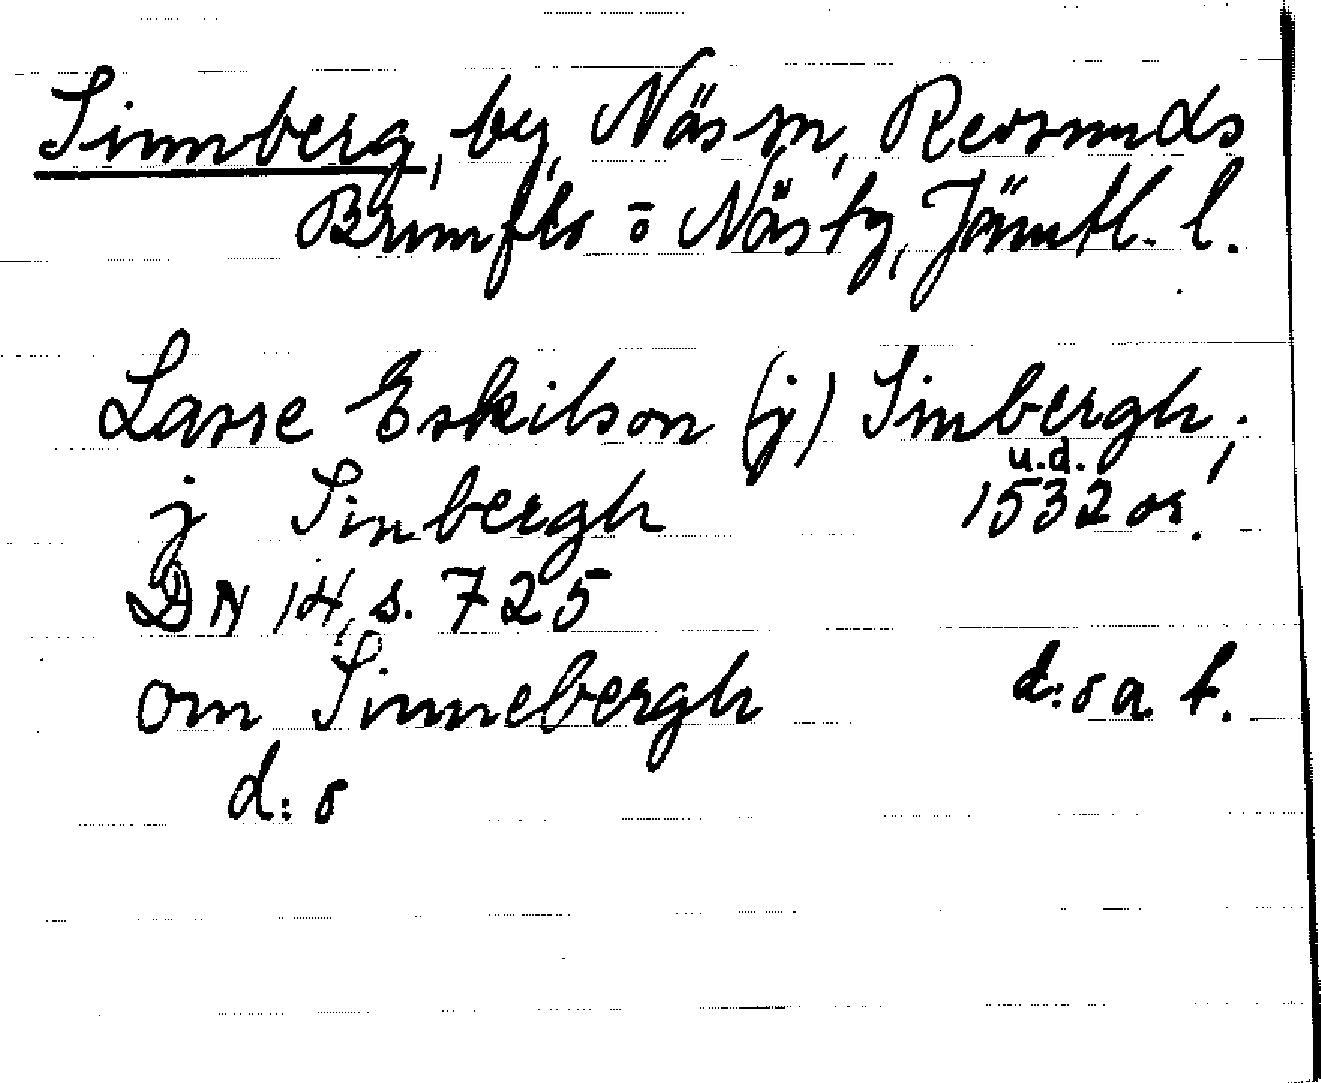 Sinnberg, by, Näs sn, Revsunds
Brunflo o Näs tg, Jämtl. l.
Lasse Eskilson (j) Sinbergh;
j Sinbergh u.d. 1532 or.
DN 14, s. 725
om Sinnebergh d:o a. t.
d:o